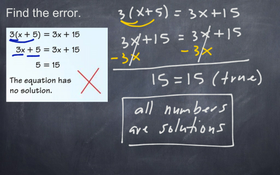 Find the error.
3(x + 5) = 3x + 15
3x + 5 = 3x + 15
5 = 15
The equation has
no solution.
3(x+5) = 3x+15
3x+15 = 3x+15
-3x -3x
15 = 15 (true)
all numbers
are solutions